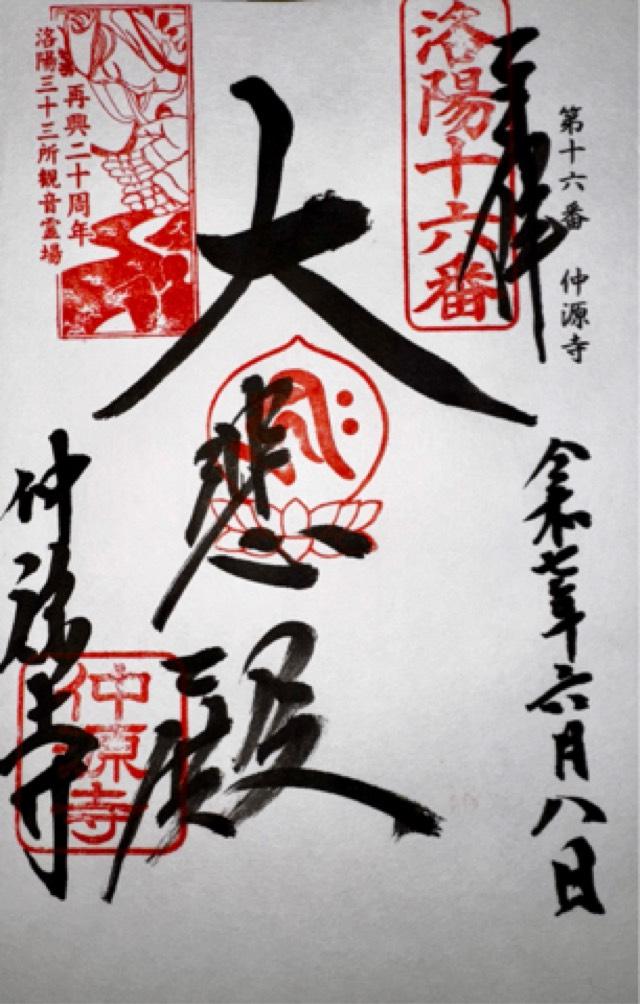 第十六番　仲源寺
奉拝
令和七年六月八日
洛陽十六番
大悲殿
再興二十周年
洛陽三十三所観音霊場
仲源寺
仲源寺